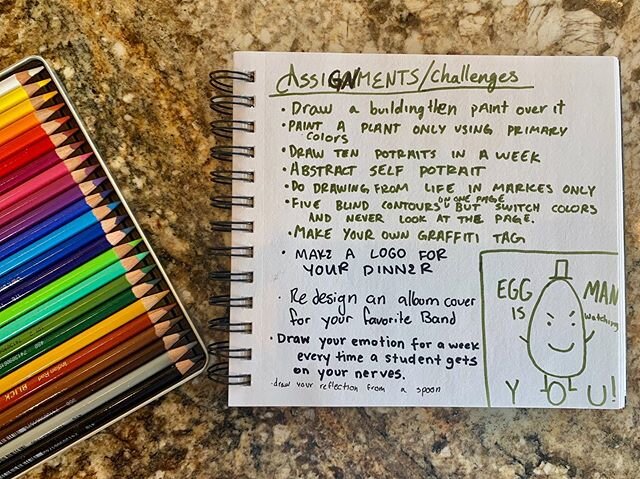 ASSIGNMENTS/challenges
• DRAW a building then PAINT over it
• PAINT A PLANT ONLY USING PRIMARY
COLORS
• DRAW TEN POTRAITS IN A WEEK
• ABSTRACT SELF POTRAIT
• DO DRAWING FROM LIFE IN MARKES ONLY
• FIVE BLIND CONTOURS ON ONE PAGE BUT SWITCH COLORS
AND NEVER LOOK AT THE PAGE.
• MAKE YOUR OWN GRAFFITI TAG
• MAKE A LOGO FOR
YOUR DINNER
• Redesign an album cover
for your favorite Band
• Draw your emotion for a week
every time a student gets
on your nerves.
• draw your reflection from a spoon
EGG MAN
IS watching
YOU!
Indian Red BLICK